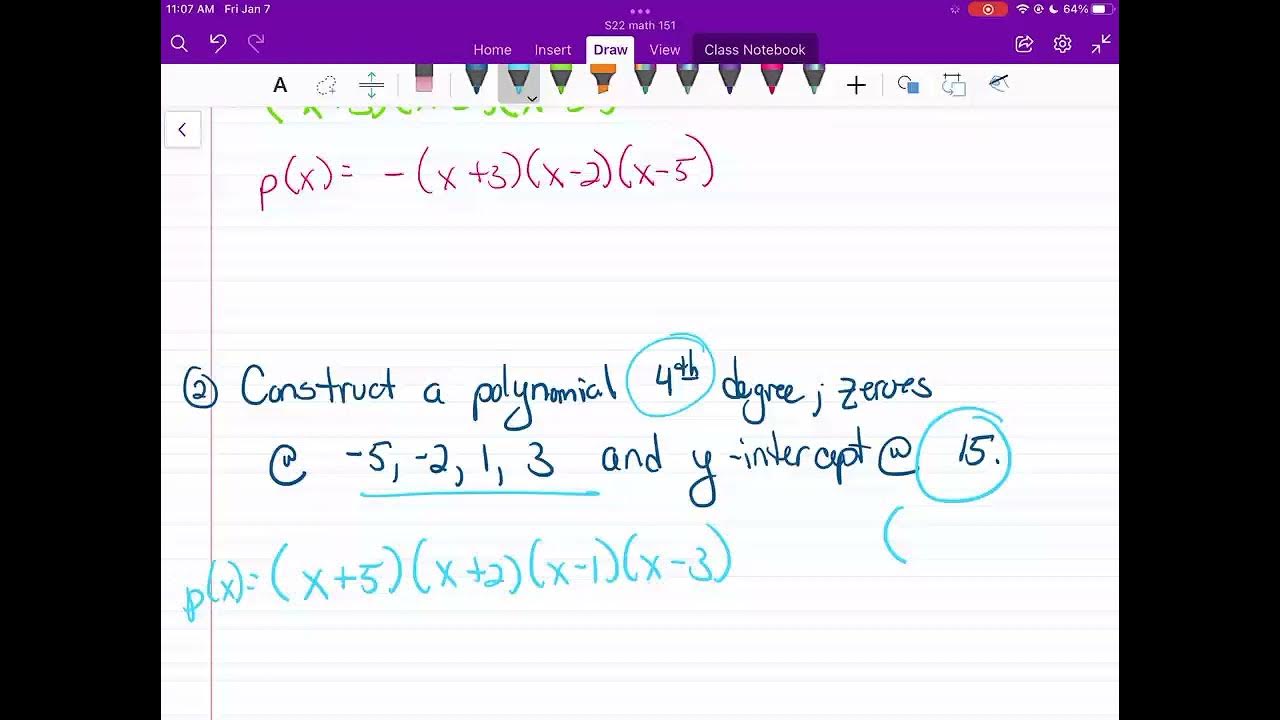 11:07 AM Fri Jan 7
64%
S22 math 151
Home Insert Draw View Class Notebook
A
p(x) = -(x+3)(x-2)(x-5)
② Construct a polynomial 4th degree; zeroes
@ -5, -2, 1, 3 and y-intercept @ 15.
(
p(x)= (x+5)(x+2)(x-1)(x-3)